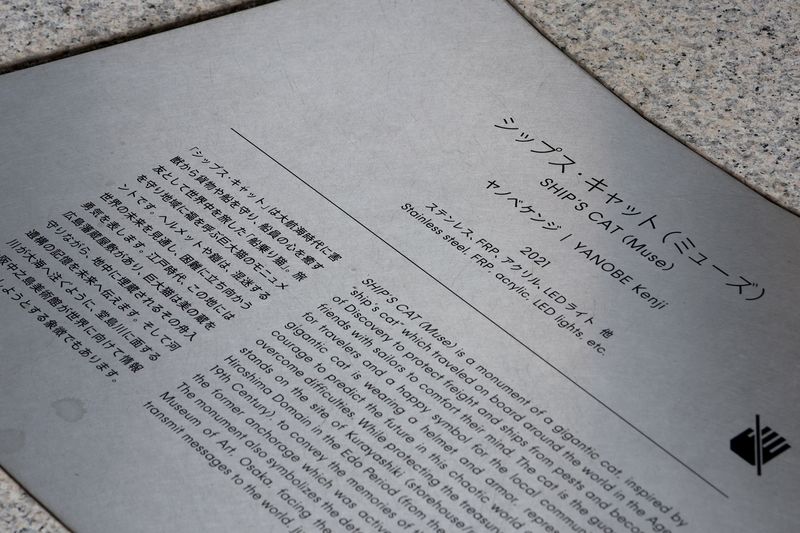 シップス・キャット（ミューズ）
SHIP'S CAT (Muse)
ヤノベケンジ | YANOBE Kenji
2021
ステンレス、FRP、アクリル、LEDライト 他
Stainless steel, FRP, acrylic, LED lights, etc.
「シップス・キャット」は大航海時代に害
獣から貨物や船を守り、船員の心を癒す
友として世界中を旅した「船乗り猫」。旅
を守り地域に福を呼ぶ巨大猫のモニュメ
ントです。ヘルメットや鎧は、混迷する
世界の未来を見通し、困難に立ち向かう
勇気を表します。江戸時代、この地には
広島藩蔵屋敷があり、巨大猫は美の蔵を
守りながら、地中に埋蔵されるその舟入
遺構の記憶を未来へ伝えます。そして河
川が大海へ注ぐように、堂島川に面する
阪中之島美術館が世界に向けて情報
しようとする象徴でもあります。
SHIP'S CAT (Muse) is a monument of a gigantic cat, inspired by
"ship's cat" which traveled on board around the world in the Age
of Discovery to protect freight and ships from pests and become
friends with sailors to comfort their mind. The cat is the
for travelers and a happy symbol for the local
gigantic cat is wearing a helmet and armor,
courage to predict the future in this chaotic world
overcome difficulties. While protecting the treasury
stands on the site of Kurayashiki (storehouse/
Hiroshima Domain in the Edo Period (from the
19th Century) to convey the memories of
the former anchorage which was active
The monument also symbolizes the
Museum of Art, Osaka, facing the
transmit messages to the world,